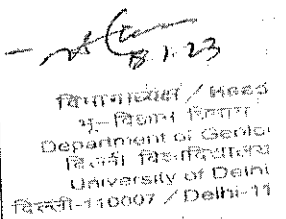 8.1.23
विभागाध्यक्ष / Head
भू-विज्ञान विभाग
Department of Geolo
दिल्ली विश्वविद्यालय
University of Delhi
दिल्ली-110007 / Delhi-11